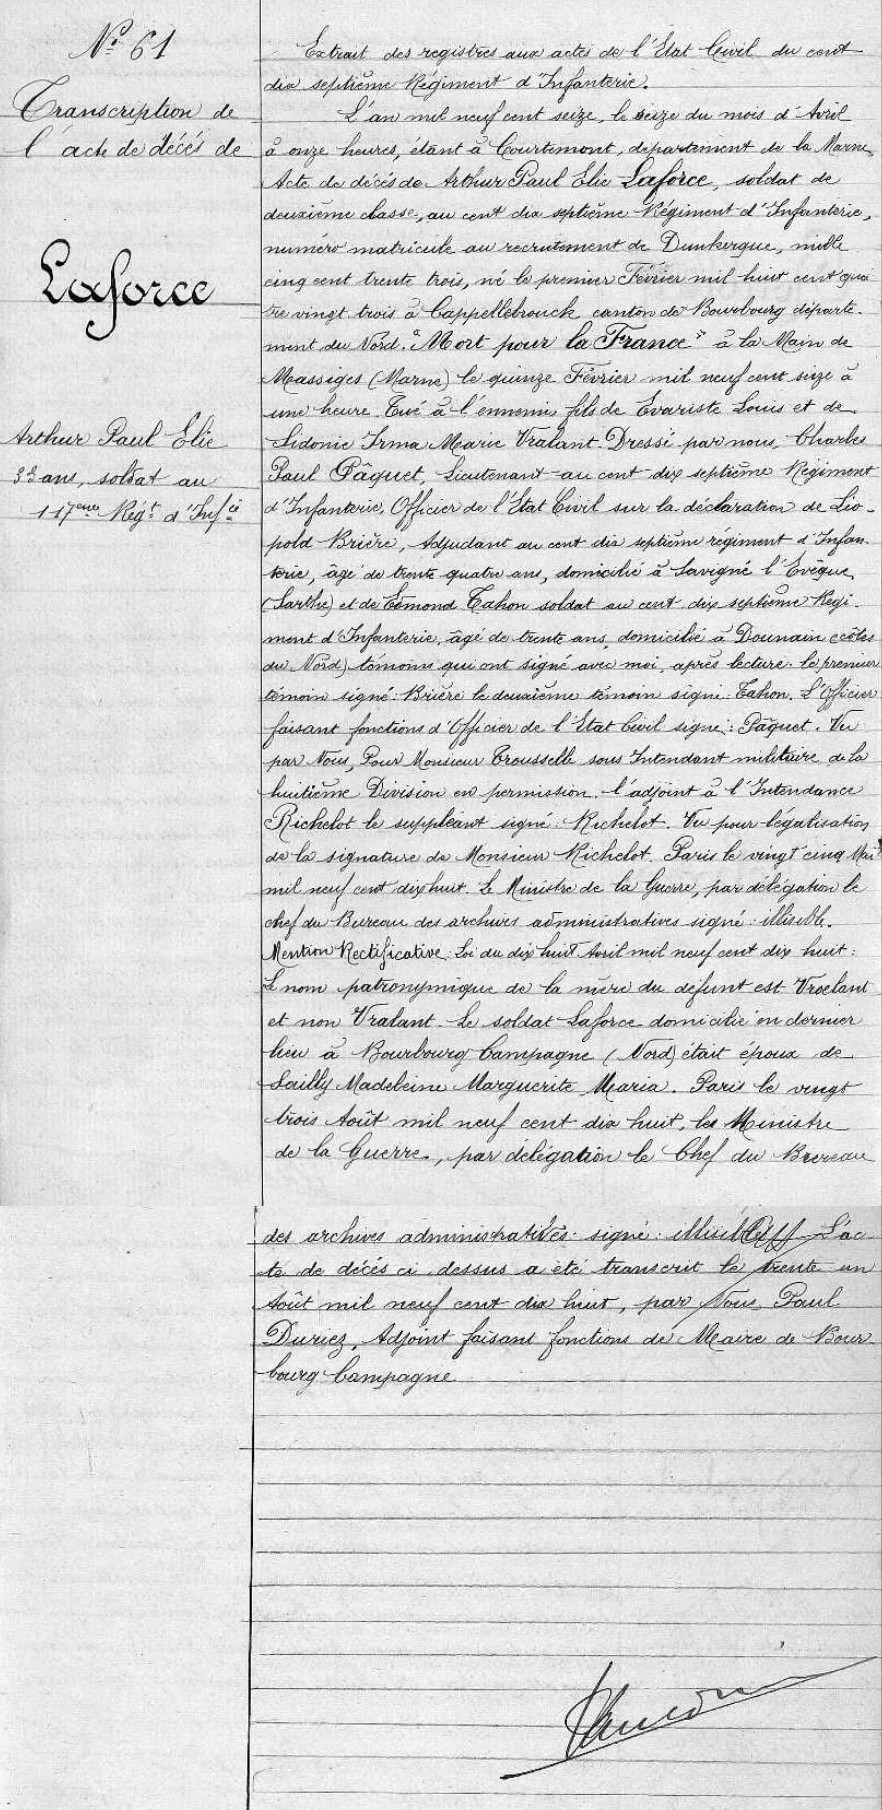 N° 61
Transcription de
l'acte de décés de
Laforce
Arthur Paul Elie
33 ans, soldat au
117eme Régt d'Infie
Extrait des registres aux actes de l'Etat Civil du cent
dix septième Régiment d'Infanterie.
L'an mil neuf cent seize, le seize du mois d'Avril
à onze heures, étant à Courtemont, département de la Marne,
Acte de décés de Arthur Paul Elie Laforce, soldat de
deuxième classe, au cent dix septième Régiment d'Infanterie,
numéro matricule au recrutement de Dunkerque, mille
cinq cent trente trois, né le premier Février mil huit cent qua
tre vingt trois à Cappellebrouck canton de Bourbourg départe-
ment du Nord. "Mort pour la France" à la Main de
Massiges (Marne) le quinze Février mil neuf cent seize à
une heure. Tué à l'ennemi, fils de Evariste Louis et de
Sidonie Irma Marie Vralant. Dressé par nous, Charles
Paul Pâquet, Lieutenant au cent dix septième Régiment
d'Infanterie, Officier de l'Etat Civil sur la déclaration de Léo-
pold Brière, Adjudant au cent dix septième régiment d'Infan-
terie, âgé de trente quatre ans, domicilié à Savigné l'Evêque
(Sarthe) et de Edmond Tahon soldat au cent dix septième Régi-
ment d'Infanterie, âgé de trente ans, domicilié à Dounain (côtes
du Nord) témoins qui ont signé avec moi, après lecture. le premier
témoin signé: Brière le deuxième témoin signé: Tahon. L'Officier
faisant fonctions d'Officier de l'Etat Civil signé: Pâquet. Vu
par Nous, Pour Monsieur Trousselle sous Intendant militaire de la
huitième Division en permission. l'adjoint à l'Intendance
Richelot le suppléant signé: Richelot. Vu pour légalisation
de la signature de Monsieur Richelot. Paris le vingt cinq Mai
mil neuf cent dix huit. Le Ministre de la Guerre, par délégation le
chef du Bureau des archives administratives signé: illisible.
Mention Rectificative: Loi du dix huit Avril mil neuf cent dix huit:
Le nom patronymique de la mère du défunt est Vroelant
et non Vralant. Le soldat Laforce domicilié en dernier
lieu à Bourbourg Campagne (Nord) était époux de
Sailly Madeleine Marguerite Maria. Paris le vingt
trois Août mil neuf cent dix huit, le Ministre
de la Guerre, par délégation le Chef du Bureau
des archives administratives. signé: illisible L'ac-
te de décés ci dessus a été transcrit le trente un
Août mil neuf cent dix huit, par Nous, Paul
Duriez, Adjoint faisant fonctions de Maire de Bour-
bourg Campagne